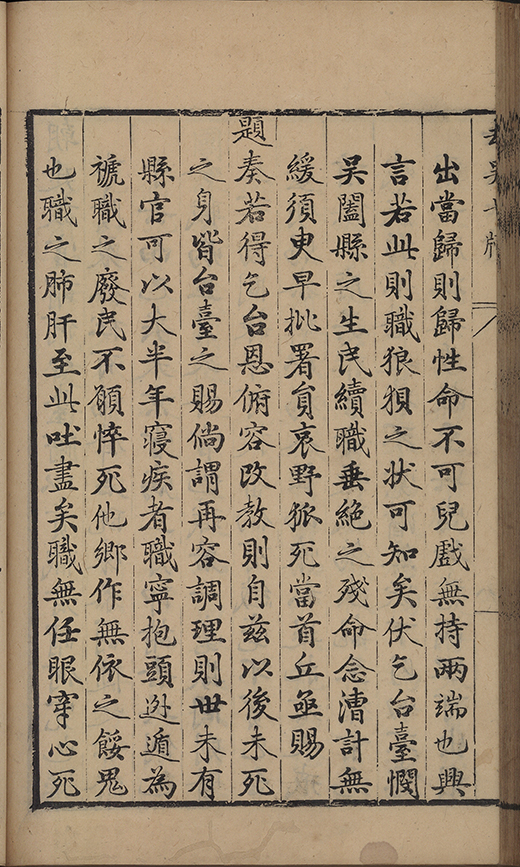 出當歸則歸性命不可兒戲無持兩端也興
言若此則職狼狽之狀可知矣伏乞台臺憫
吳闔縣之生民續職垂絕之殘命念漕計無
緩須臾早批署員哀野狐死當首丘亟賜
題奏若得乞台恩俯容改教則自茲以後未死
之身皆台臺之賜倘謂再容調理則世未有
縣官可以大半年寢疾者職寧抱頭迯遁為
褫職之廢民不願悴死他鄉作無依之餒鬼
也職之肺肝至此吐盡矣職無任眼穿心死